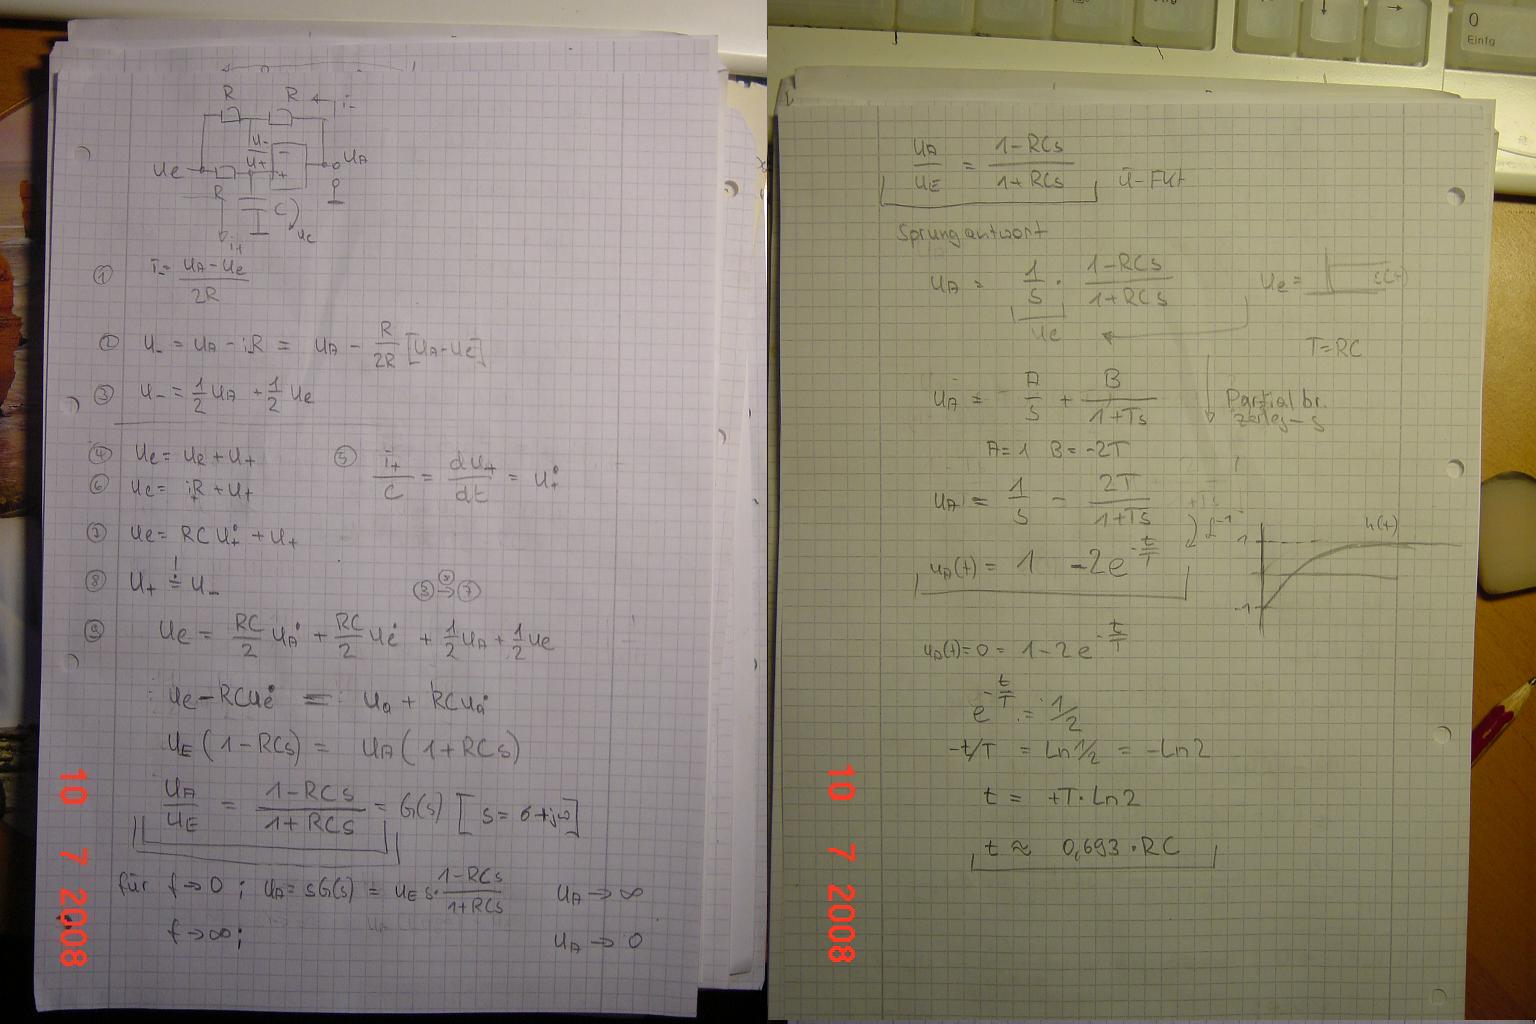 R R i-
U-
U+
Ue UA
- +
R C
i+ uc
① i- = (UA - Ue) / 2R
② U- = UA - i-R = UA - R/2R [UA-Ue]
③ U- = 1/2 UA + 1/2 Ue
④ Ue = UR + U+ ⑤ i+/C = dU+/dt = U̇+
⑥ Ue = i+R + U+
⑦ Ue = RC U̇+ + U+
⑧ U+ =! U- ③ → ⑦
⑨ Ue = RC/2 U̇A + RC/2 U̇e + 1/2 UA + 1/2 Ue
Ue - RCU̇e = Ua + RCU̇a
UE (1-RCs) = UA (1+RCs)
UA/UE = (1-RCs)/(1+RCs) = G(s) [s = σ+jω]
für f → 0 ; UA = sG(s) = UE s · (1-RCs)/(1+RCs) UA → ∞
f → ∞ ; UA → 0
10 7 2008
UA/UE = (1-RCs)/(1+RCs) Ü-Fkt
Sprungantwort
UA = 1/s · (1-RCs)/(1+RCs) Ue = ε(t)
Ue
T=RC
UA = A/s + B/(1+Ts) Partialbr.
zerleg-g
A=1 B=-2T
UA = 1/s - 2T/(1+Ts)
L-1
uA(t) = 1 -2e^(-t/T)
1 h(t)
-1
uA(t)=0= 1-2e^(-t/T)
e^(-t/T) = 1/2
-t/T = Ln 1/2 = -Ln2
t = +T·Ln2
t ≈ 0,693·RC
10 7 2008
0
Einfg
↓ →